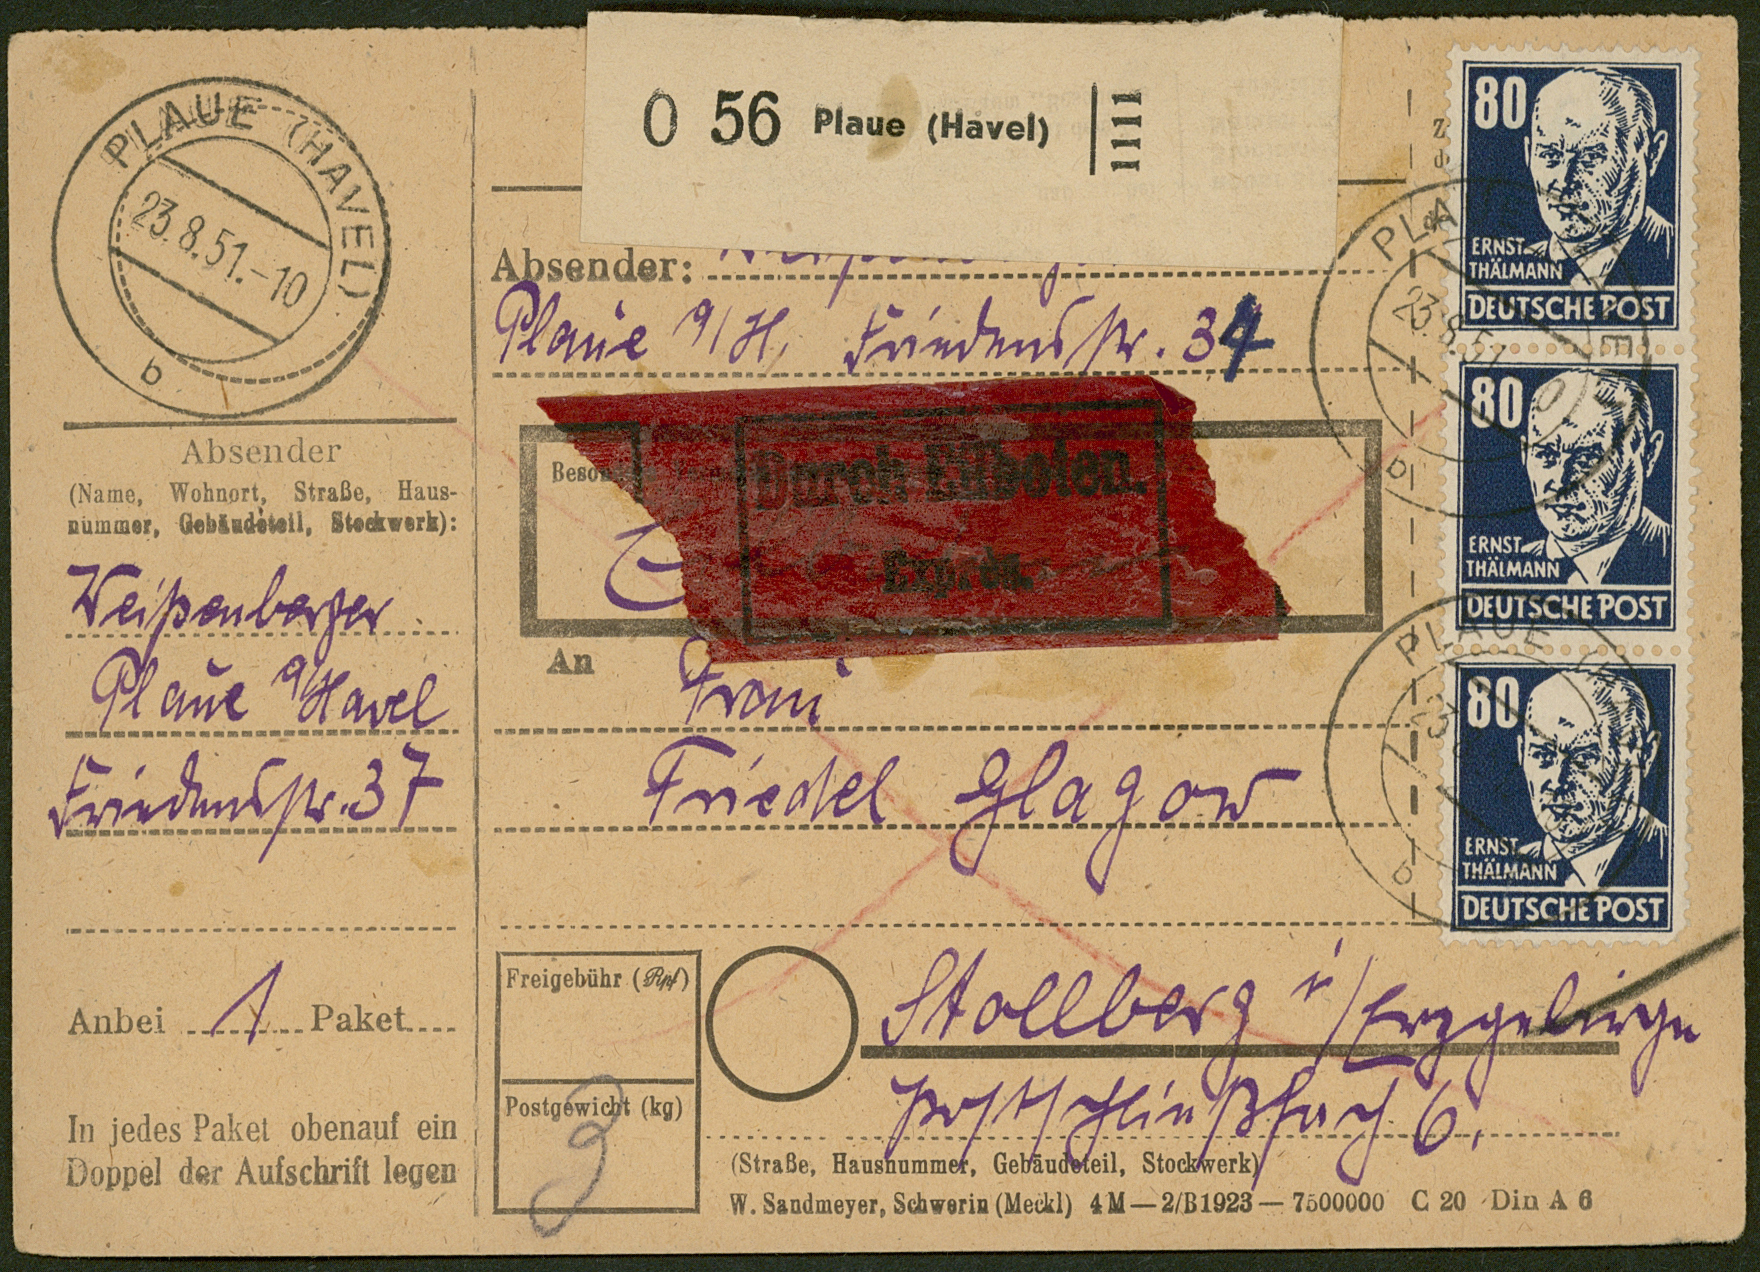 PLAUE (HAVEL)
23.8.51.-10
b
O 56 Plaue (Havel) 1111
Absender:
Plaue a/H, Friedensstr. 37
Absender
(Name, Wohnort, Straße, Haus-
nummer, Gebäudeteil, Stockwerk):
Weißenberger
Plaue a/Havel
Friedensstr. 37
Anbei 1 Paket
In jedes Paket obenauf ein
Doppel der Aufschrift legen
Durch Eilboten.
Exprès.
An Frau
Friedel Glagow
Stollberg i/Erzgebirge
Postschließfach 6.
Freigebühr (Rpf)
Postgewicht (kg)
3
(Straße, Hausnummer, Gebäudeteil, Stockwerk)
W. Sandmeyer, Schwerin (Meckl) 4 M — 2/B 1923 — 7500000 C 20 Din A 6
80
ERNST
THÄLMANN
DEUTSCHE POST
80
ERNST
THÄLMANN
DEUTSCHE POST
80
ERNST
THÄLMANN
DEUTSCHE POST
PLAUE
23.8.51
b
PLAUE
b